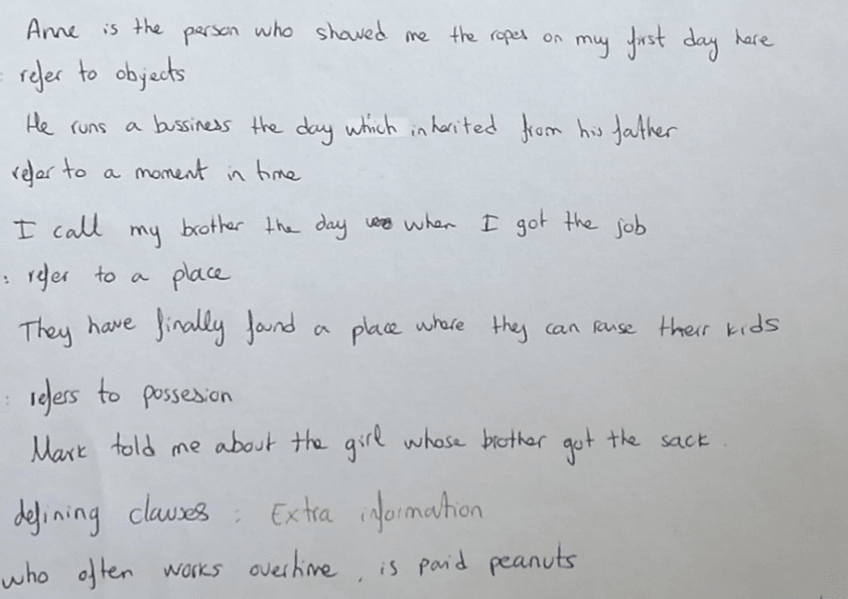 Anne is the person who showed me the ropes on my first day here
: refer to objects
He runs a bussiness the day which inherited from his father
refer to a moment in time
I call my brother the day when I got the job
: refer to a place
They have finally found a place where they can raise their kids
: refers to possesion
Mark told me about the girl whose brother got the sack.
defining clauses : Extra information
who often works overtime, is paid peanuts